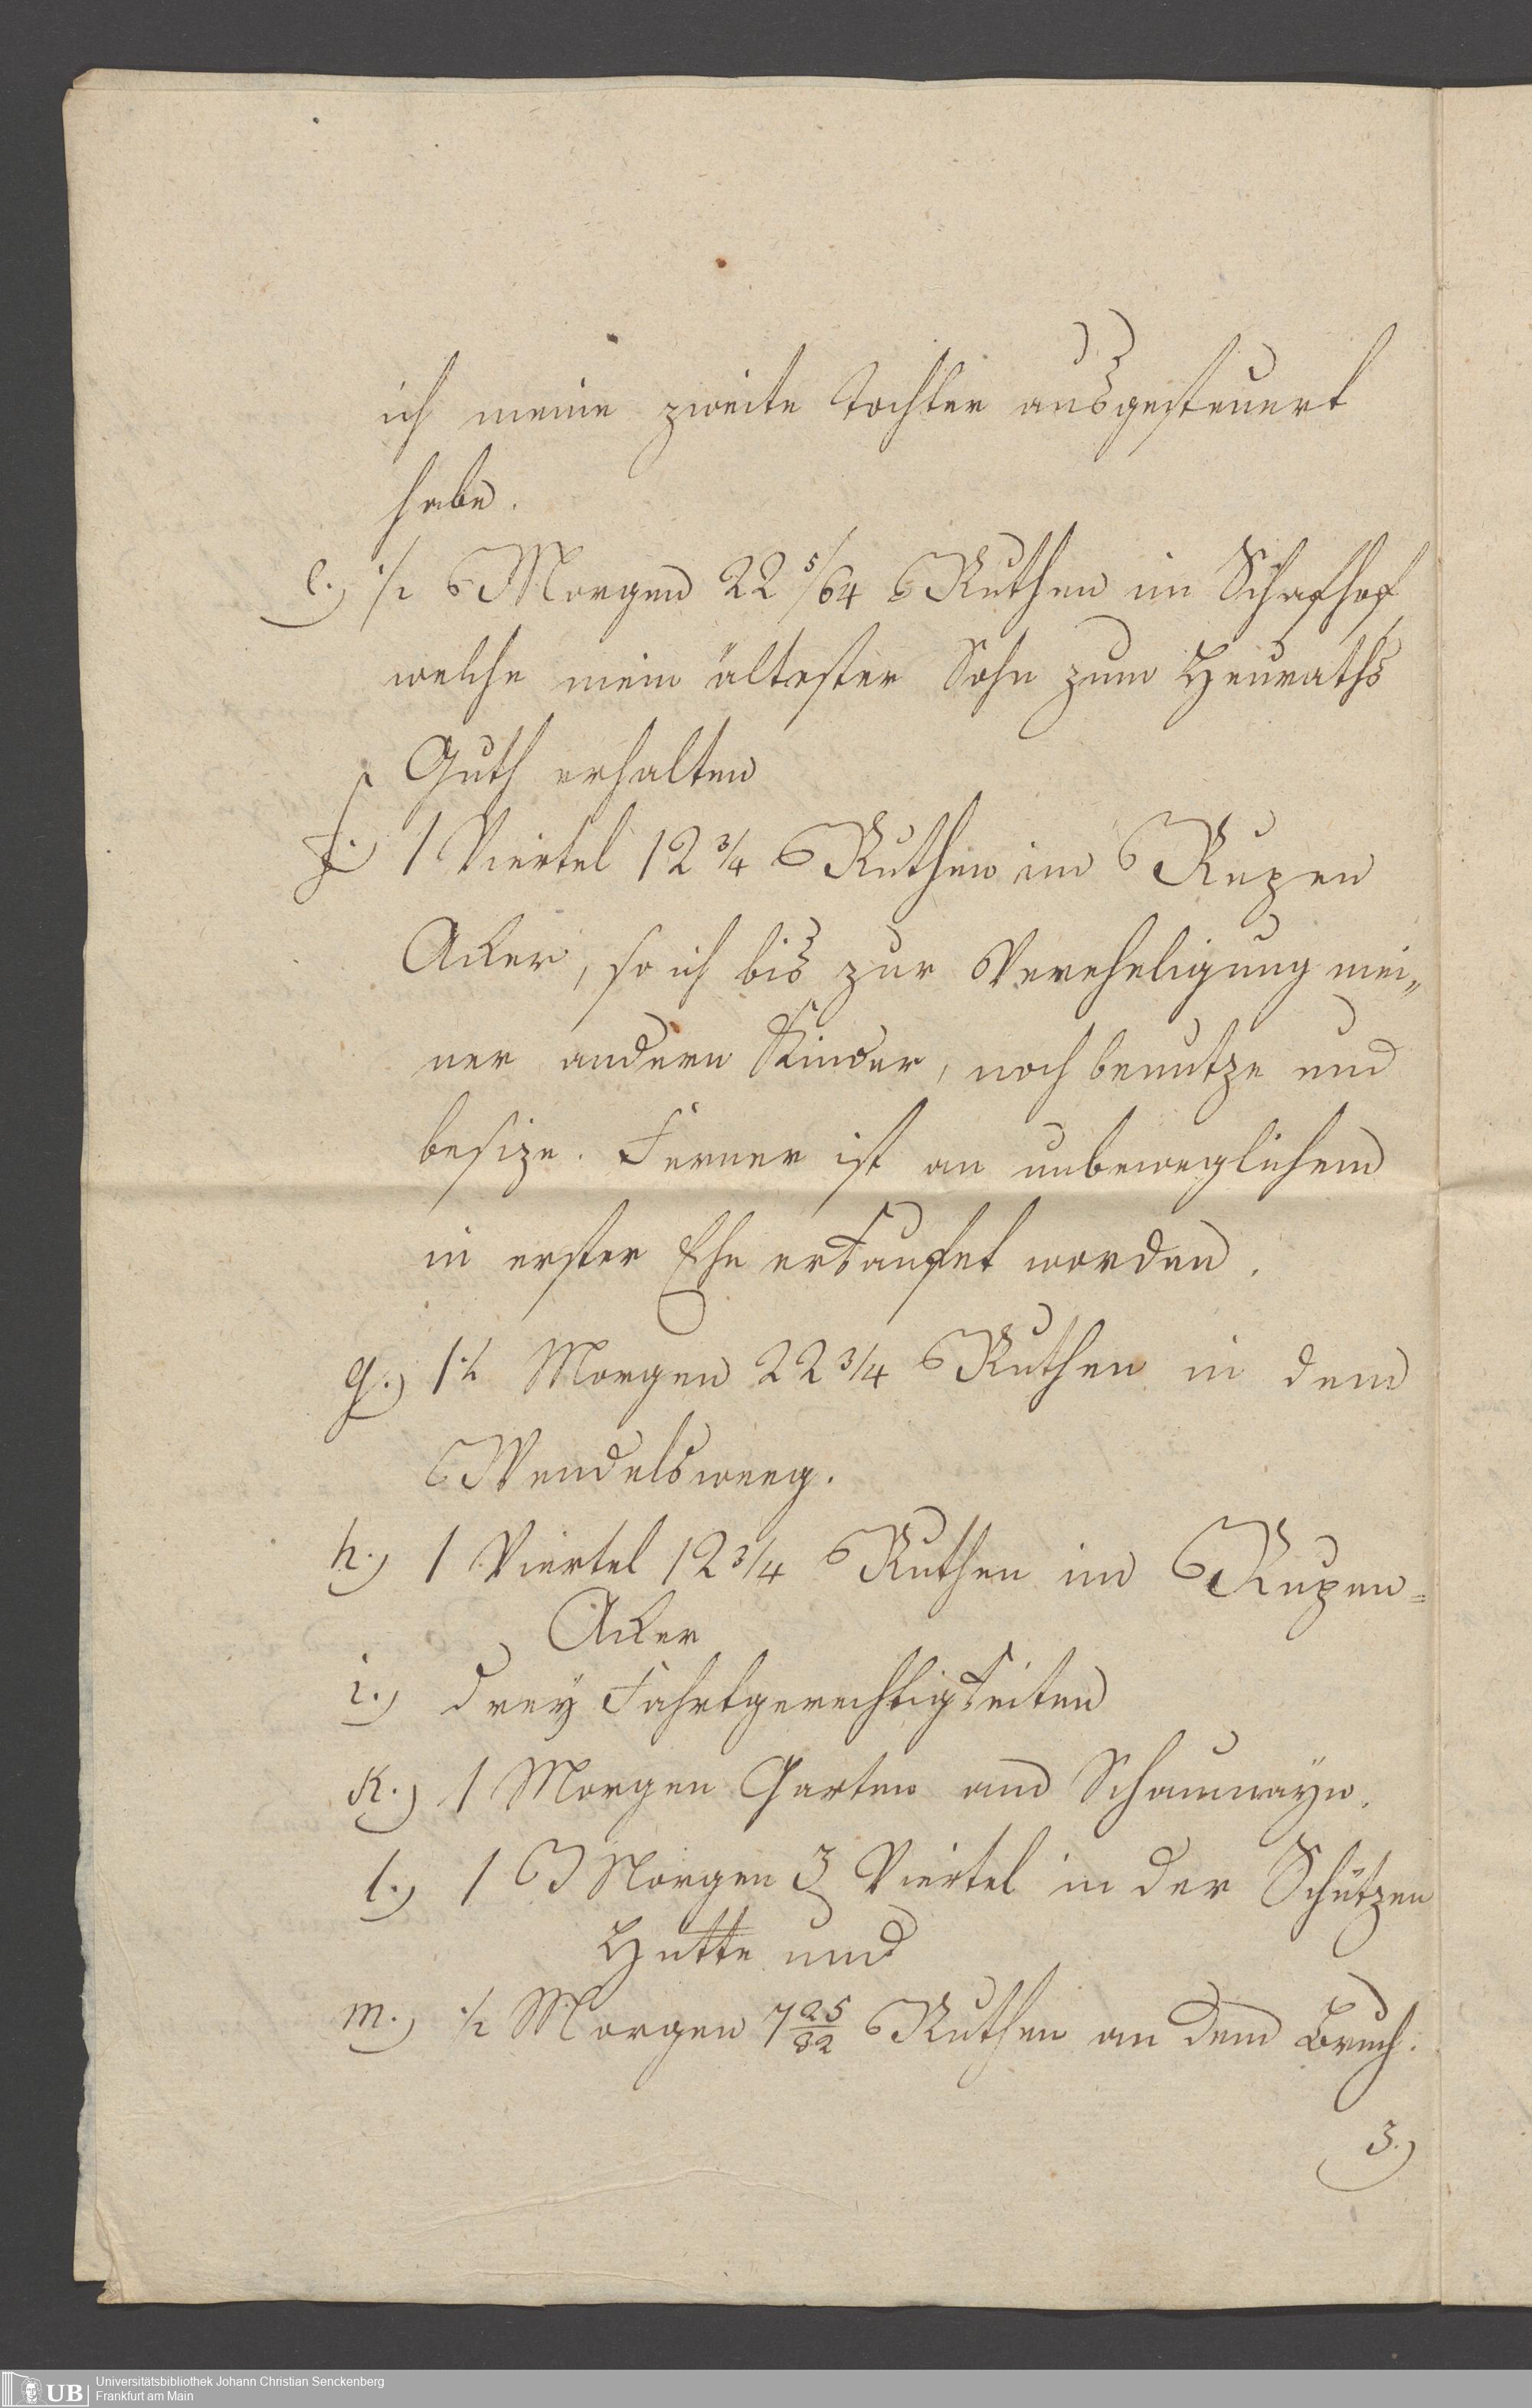 ich meine zweite Tochter ausgesteuert
habe.
e.) 1/2 Morgen 22 5/64 Ruthen im Schafhof
welche mein ältester Sohn zum Heuraths
Guth erhalten
f.) 1 Viertel 12 3/4 Ruthen im Rupen
Acker, so ich bis zur Verehligung mei„
ner andern Kinder, noch benutze und
besize. Ferner ist an unbeweglichem
in erster Ehe erkaufet worden.
g.) 1 1/2 Morgen 22 3/4 Ruthen in dem
Wendelsweeg.
h.) 1 Viertel 12 3/4 Ruthen im Rupen=
Acker
i.) drey Fahrtgerechtigkeiten
K.) 1 Morgen Garten am Schaumayn.
l.) 1 Morgen 3 Viertel in der Schützen
Hutte und
m.) 1/2 Morgen 7 25/32 Ruthen an dem Bruch.
3.)
UB
Universitätsbibliothek Johann Christian Senckenberg
Frankfurt am Main